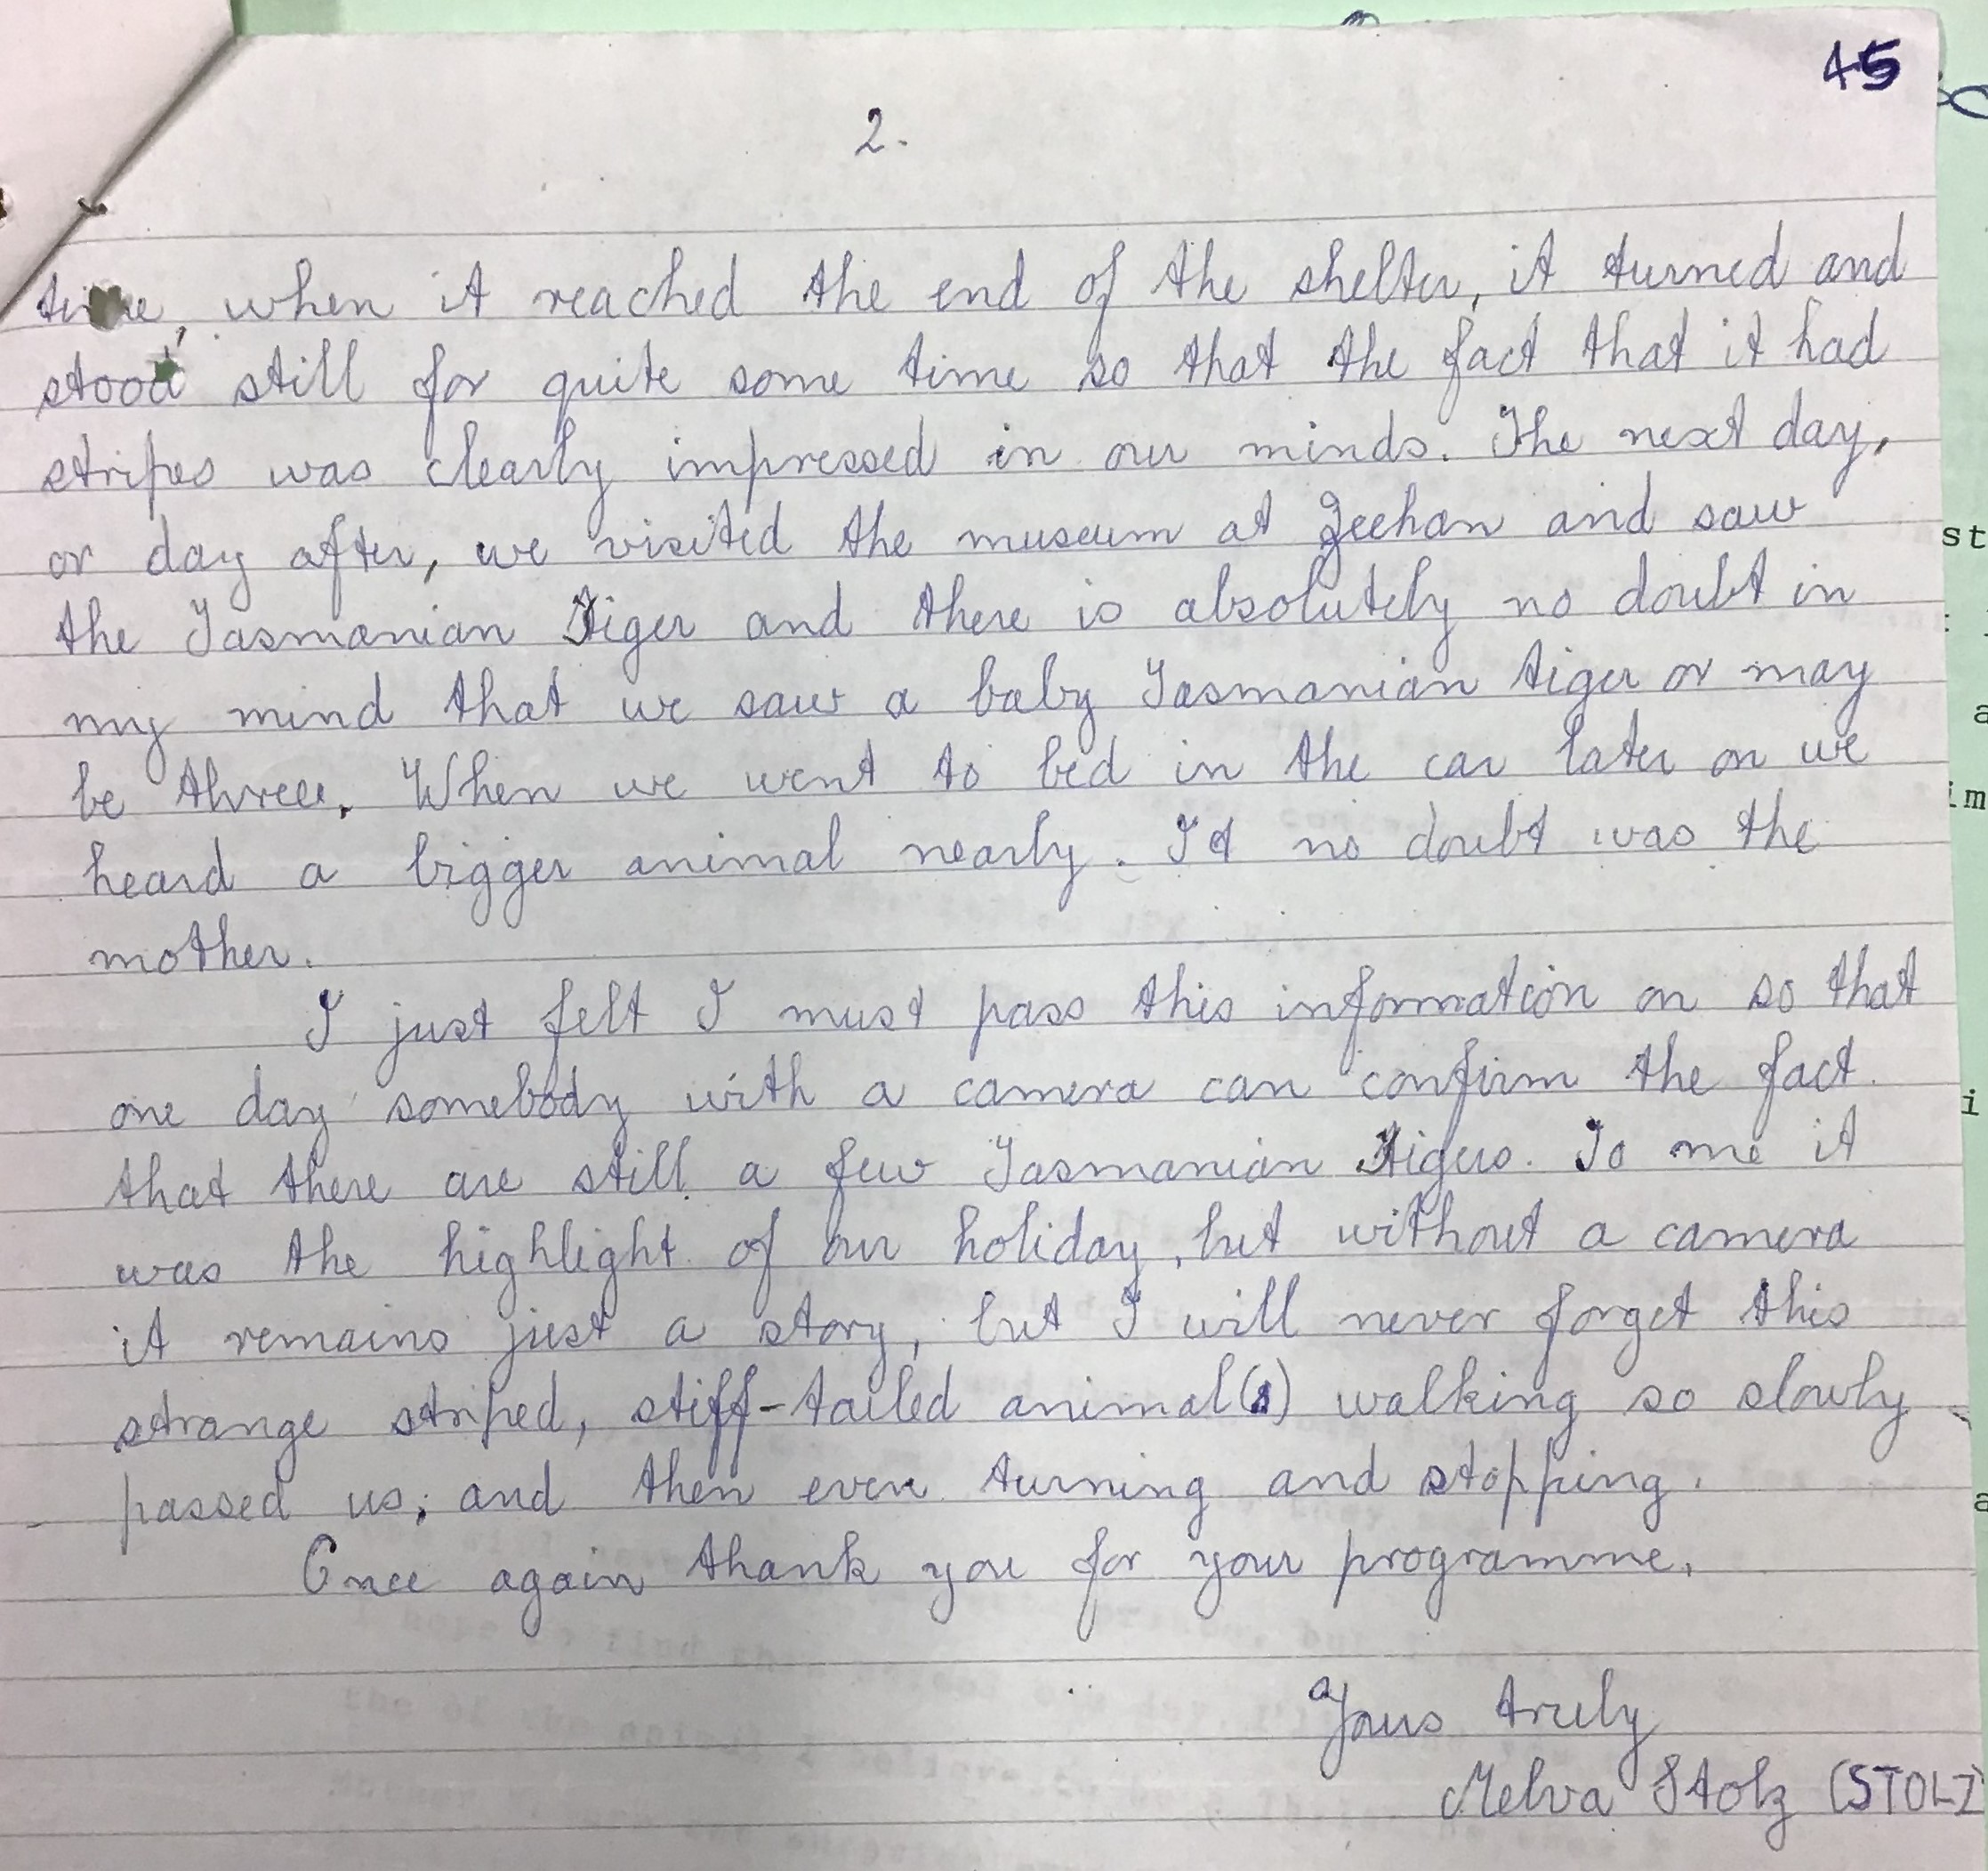 45
2.
time, when it reached the end of the shelter, it turned and
stood still for quite some time so that the fact that it had
stripes was clearly impressed in our minds. The next day,
or day after, we visited the museum at Zeehan and saw
the Tasmanian Tiger and there is absolutely no doubt in
my mind that we saw a baby Tasmanian tiger or may
be three. When we went to bed in the car later on we
heard a bigger animal nearly. It no doubt was the
mother.
I just felt I must pass this information on so that
one day somebody with a camera can confirm the fact
that there are still a few Tasmanian Tigers. To me it
was the highlight of our holiday, but without a camera
it remains just a story, but I will never forget this
strange striped, stiff-tailed animal(s) walking so slowly
passed us; and then even turning and stopping.
Once again thank you for your programme.
Yours truly
Melva Stolz (STOLZ